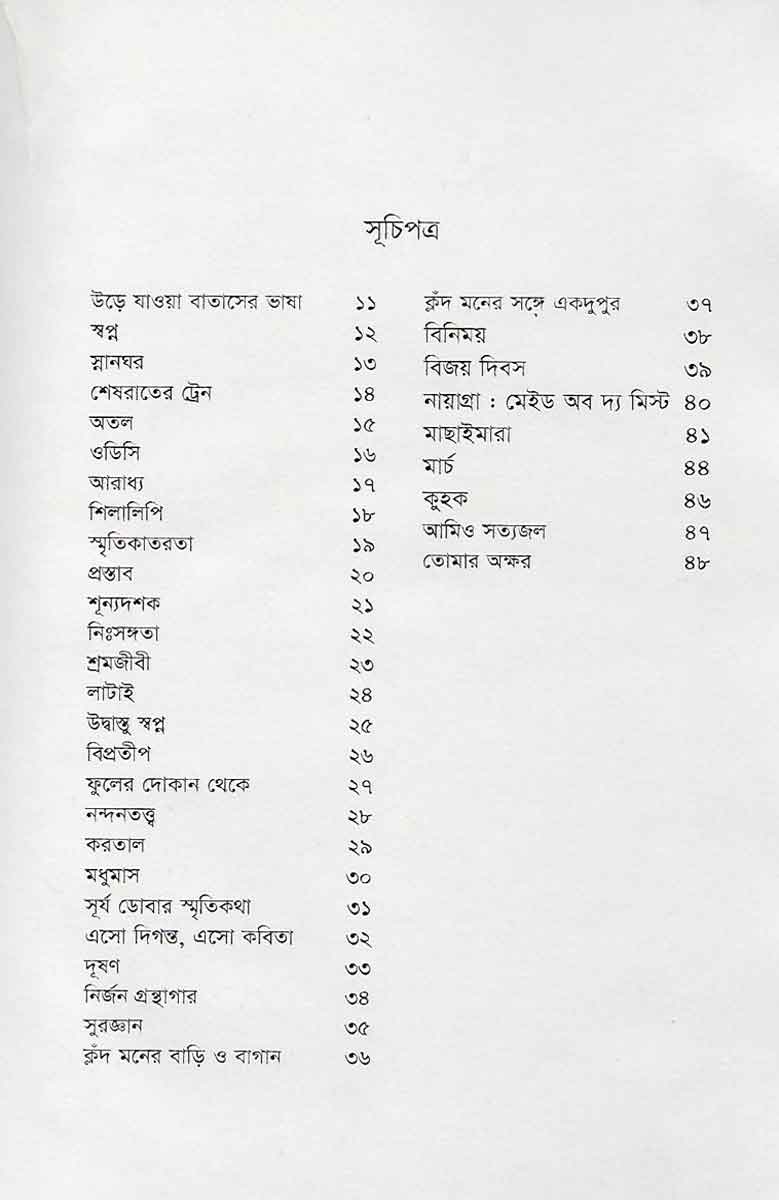 সূচিপত্র
উড়ে যাওয়া বাতাসের ভাষা ১১
স্বপ্ন ১২
স্নানঘর ১৩
শেষরাতের ট্রেন ১৪
অতল ১৫
ওডিসি ১৬
আরাধ্য ১৭
শিলালিপি ১৮
স্মৃতিকাতরতা ১৯
প্রস্তাব ২০
শূন্যদশক ২১
নিঃসঙ্গতা ২২
শ্রমজীবী ২৩
লাটাই ২৪
উদ্বাস্তু স্বপ্ন ২৫
বিপ্রতীপ ২৬
ফুলের দোকান থেকে ২৭
নন্দনতত্ত্ব ২৮
করতাল ২৯
মধুমাস ৩০
সূর্য ডোবার স্মৃতিকথা ৩১
এসো দিগন্ত, এসো কবিতা ৩২
দূষণ ৩৩
নির্জন গ্রন্থাগার ৩৪
সুরজ্ঞান ৩৫
ক্লঁদ মনের বাড়ি ও বাগান ৩৬
ক্লঁদ মনের সঙ্গে একদুপুর ৩৭
বিনিময় ৩৮
বিজয় দিবস ৩৯
নায়াগ্রা : মেইড অব দ্য মিস্ট ৪০
মাছাইমারা ৪১
মার্চ ৪৪
কুহক ৪৬
আমিও সত্যজল ৪৭
তোমার অক্ষর ৪৮